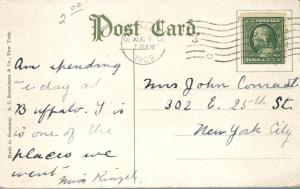 2.00
Post Card
AUG 6
7:30 AM
1909
ONE CENT
Made in Germany. A. C. Bosselman & Co., New York.
Am spending
day at
Buffalo. I
is one of the
places we
went
Miss Kingel
Mrs John Conradt
302 E. 25th St.
New York City